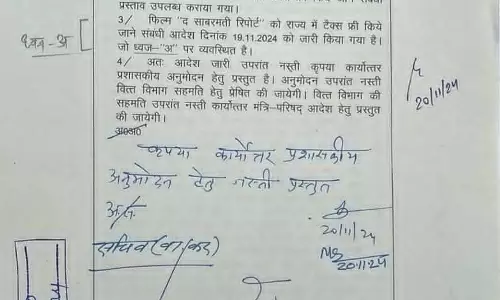 प्रस्ताव उपलब्ध कराया गया।
3/ फिल्म "द साबरमती रिपोर्ट" को राज्य में टैक्स फ्री किये
जाने संबंधी आदेश दिनांक 19.11.2024 को जारी किया गया है।
जो ध्वज-"अ" पर व्यवस्थित है।
ध्वज-अ
4/ अतः आदेश जारी उपरांत नस्ती कृपया कार्योत्तर
प्रशासकीय अनुमोदन हेतु प्रस्तुत है। अनुमोदन उपरांत नस्ती
वित्त विभाग सहमति हेतु प्रेषित की जायेगी। वित्त विभाग की
सहमति उपरांत नस्ती कार्योत्तर मंत्रि-परिषद आदेश हेतु प्रस्तुत
की जायेगी।
20/11/24
कृपया कार्योत्तर प्रशासकीय
अनुमोदन हेतु नस्ती प्रस्तुत
20/11/24
सचिव (वा/कर)
20.11.24